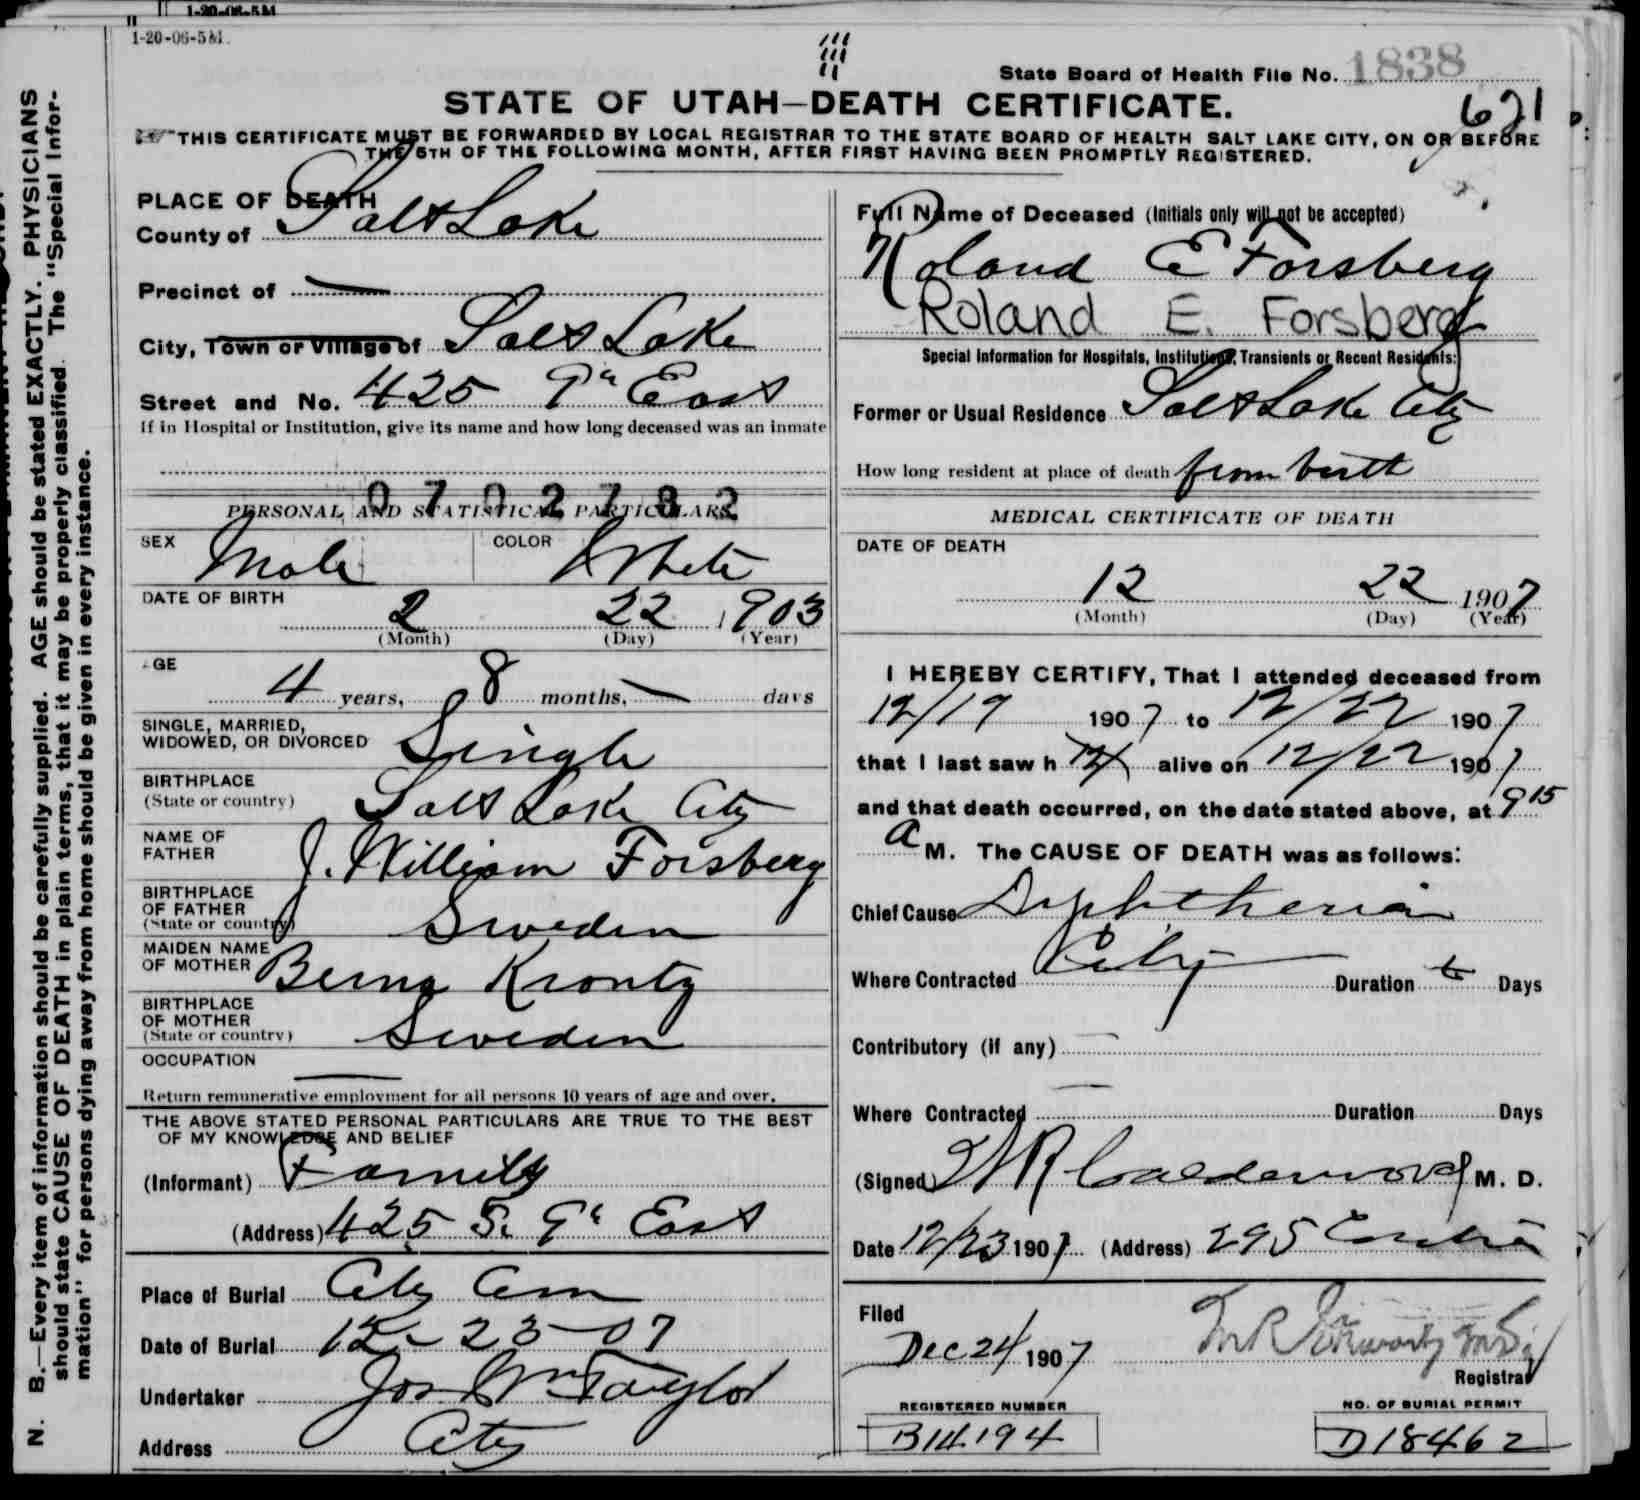 1-20-06-5M
1-20-06-5M.
State Board of Health File No. 1838
STATE OF UTAH—DEATH CERTIFICATE.
621
THIS CERTIFICATE MUST BE FORWARDED BY LOCAL REGISTRAR TO THE STATE BOARD OF HEALTH SALT LAKE CITY, ON OR BEFORE
THE 5TH OF THE FOLLOWING MONTH, AFTER FIRST HAVING BEEN PROMPTLY REGISTERED.
N. B.—Every item of information should be carefully supplied. AGE should be stated EXACTLY. PHYSICIANS
should state CAUSE OF DEATH in plain terms, that it may be properly classified. The "Special Infor-
mation" for persons dying away from home should be given in every instance.
PLACE OF DEATH
County of Salt Lake
Precinct of —
City, Town or Village of Salt Lake
Street and No. 425 9" East
If in Hospital or Institution, give its name and how long deceased was an inmate
0702782
PERSONAL AND STATISTICAL PARTICULARS
SEX Male COLOR White
DATE OF BIRTH
2 22 1903
(Month) (Day) (Year)
AGE
4 years, 8 months, — days
SINGLE, MARRIED,
WIDOWED, OR DIVORCED Single
BIRTHPLACE
(State or country) Salt Lake City
NAME OF
FATHER J. William Forsberg
BIRTHPLACE
OF FATHER
(State or country) Sweden
MAIDEN NAME
OF MOTHER Berna Krontz
BIRTHPLACE
OF MOTHER
(State or country) Sweden
OCCUPATION —
Return remunerative employment for all persons 10 years of age and over.
THE ABOVE STATED PERSONAL PARTICULARS ARE TRUE TO THE BEST
OF MY KNOWLEDGE AND BELIEF
(Informant) Family
(Address) 425 S. 9" East
Place of Burial City Cem
Date of Burial 12-23-07
Undertaker Jos Wm Taylor
Address City
Full Name of Deceased (Initials only will not be accepted)
Roland E Forsberg
Roland E. Forsberg
Special Information for Hospitals, Institutions, Transients or Recent Residents:
Former or Usual Residence Salt Lake City
How long resident at place of death from birth
MEDICAL CERTIFICATE OF DEATH
DATE OF DEATH
12 22 1907
(Month) (Day) (Year)
I HEREBY CERTIFY, That I attended deceased from
12/19 1907 to 12/22 1907
that I last saw h alive on 12/22 1907
and that death occurred, on the date stated above, at 9 15
a M. The CAUSE OF DEATH was as follows:
Chief Cause Diphtheria
Where Contracted City Duration Days
Contributory (if any) —
Where Contracted — Duration Days
(Signed) W R Calderwood M. D.
Date 12/23 1907 (Address) 295
Filed
Dec 24 1907
Registrar
REGISTERED NUMBER
B14194
NO. OF BURIAL PERMIT
D18462